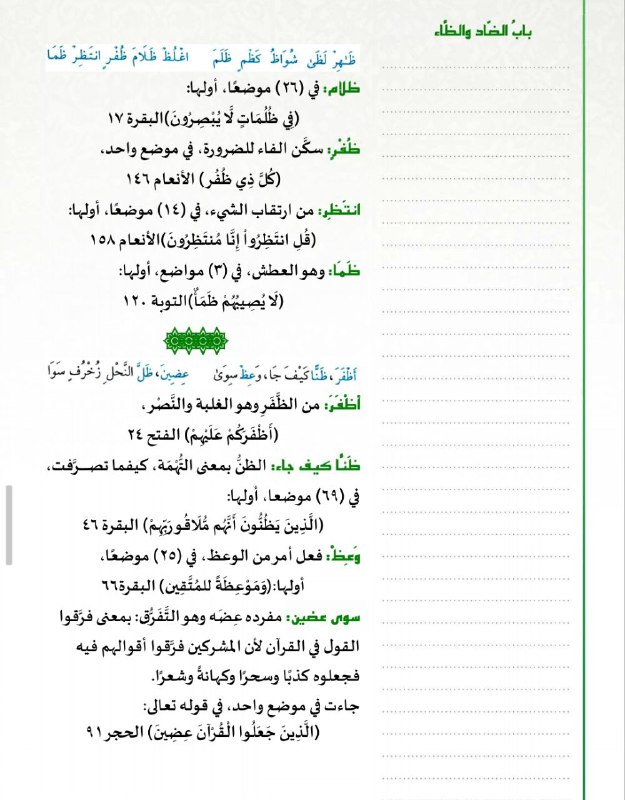 بابُ الضّاد والظّاء
ظَـٰهِرْ لَظَىٰ شُوَاظُ كَظْمٍ ظَلَمَ    اغْلُظْ ظَلَامَ ظُفْرٍ انتَظِرْ ظَمَا
ظلام: في (٢٦) موضعًا، أولها:
(فِي ظُلُمَاتٍ لَّا يُبْصِرُونَ)البقرة ١٧
ظُفْرِ: سكَّن الفاء للضرورة، في موضع واحد،
(كُلَّ ذِي ظُفُرٍ) الأنعام ١٤٦
انتَظِرِ: من ارتقاب الشيء، في (١٤) موضعًا، أولها:
(قُلِ انتَظِرُواْ إِنَّا مُنتَظِرُونَ)الأنعام ١٥٨
ظَمَا: وهو العطش، في (٣) مواضع، أولها:
(لَا يُصِيبُهُمْ ظَمَأٌ)التوبة ١٢٠
أَظْفَرَ، ظَنًّا كَيْفَ جَا، وَعِظْ سِوَىٰ    عِضِينَ، ظَلَّ النَّحْلِ زُخْرُفٍ سَوَا
أظْفَرَ: من الظَّفَرِ وهو الغلبة والنَّصْر،
(أَظْفَرَكُمْ عَلَيْهِمْ) الفتح ٢٤
ظَنًّا كيف جاء: الظنُّ بمعنى التُّهْمَة، كيفما تصرَّفت،
في (٦٩) موضعا، أولها:
(الَّذِينَ يَظُنُّونَ أَنَّهُم مُّلَاقُو رَبِّهِمْ) البقرة ٤٦
وَعِظْ: فعل أمر من الوعظ، في (٢٥) موضعًا،
أولها:(وَمَوْعِظَةً للمُتَّقِين) البقرة٦٦
سوى عضين: مفرده عِضَه وهو التَّفَرُّق: بمعنى فرَّقوا
القول في القرآن لأن المشركين فرَّقوا أقوالهم فيه
فجعلوه كذبًا وسحرًا وكهانةً وشعرًا.
جاءت في موضع واحد، في قوله تعالى:
(الَّذِينَ جَعَلُوا الْقُرْآنَ عِضِينَ) الحجر ٩١